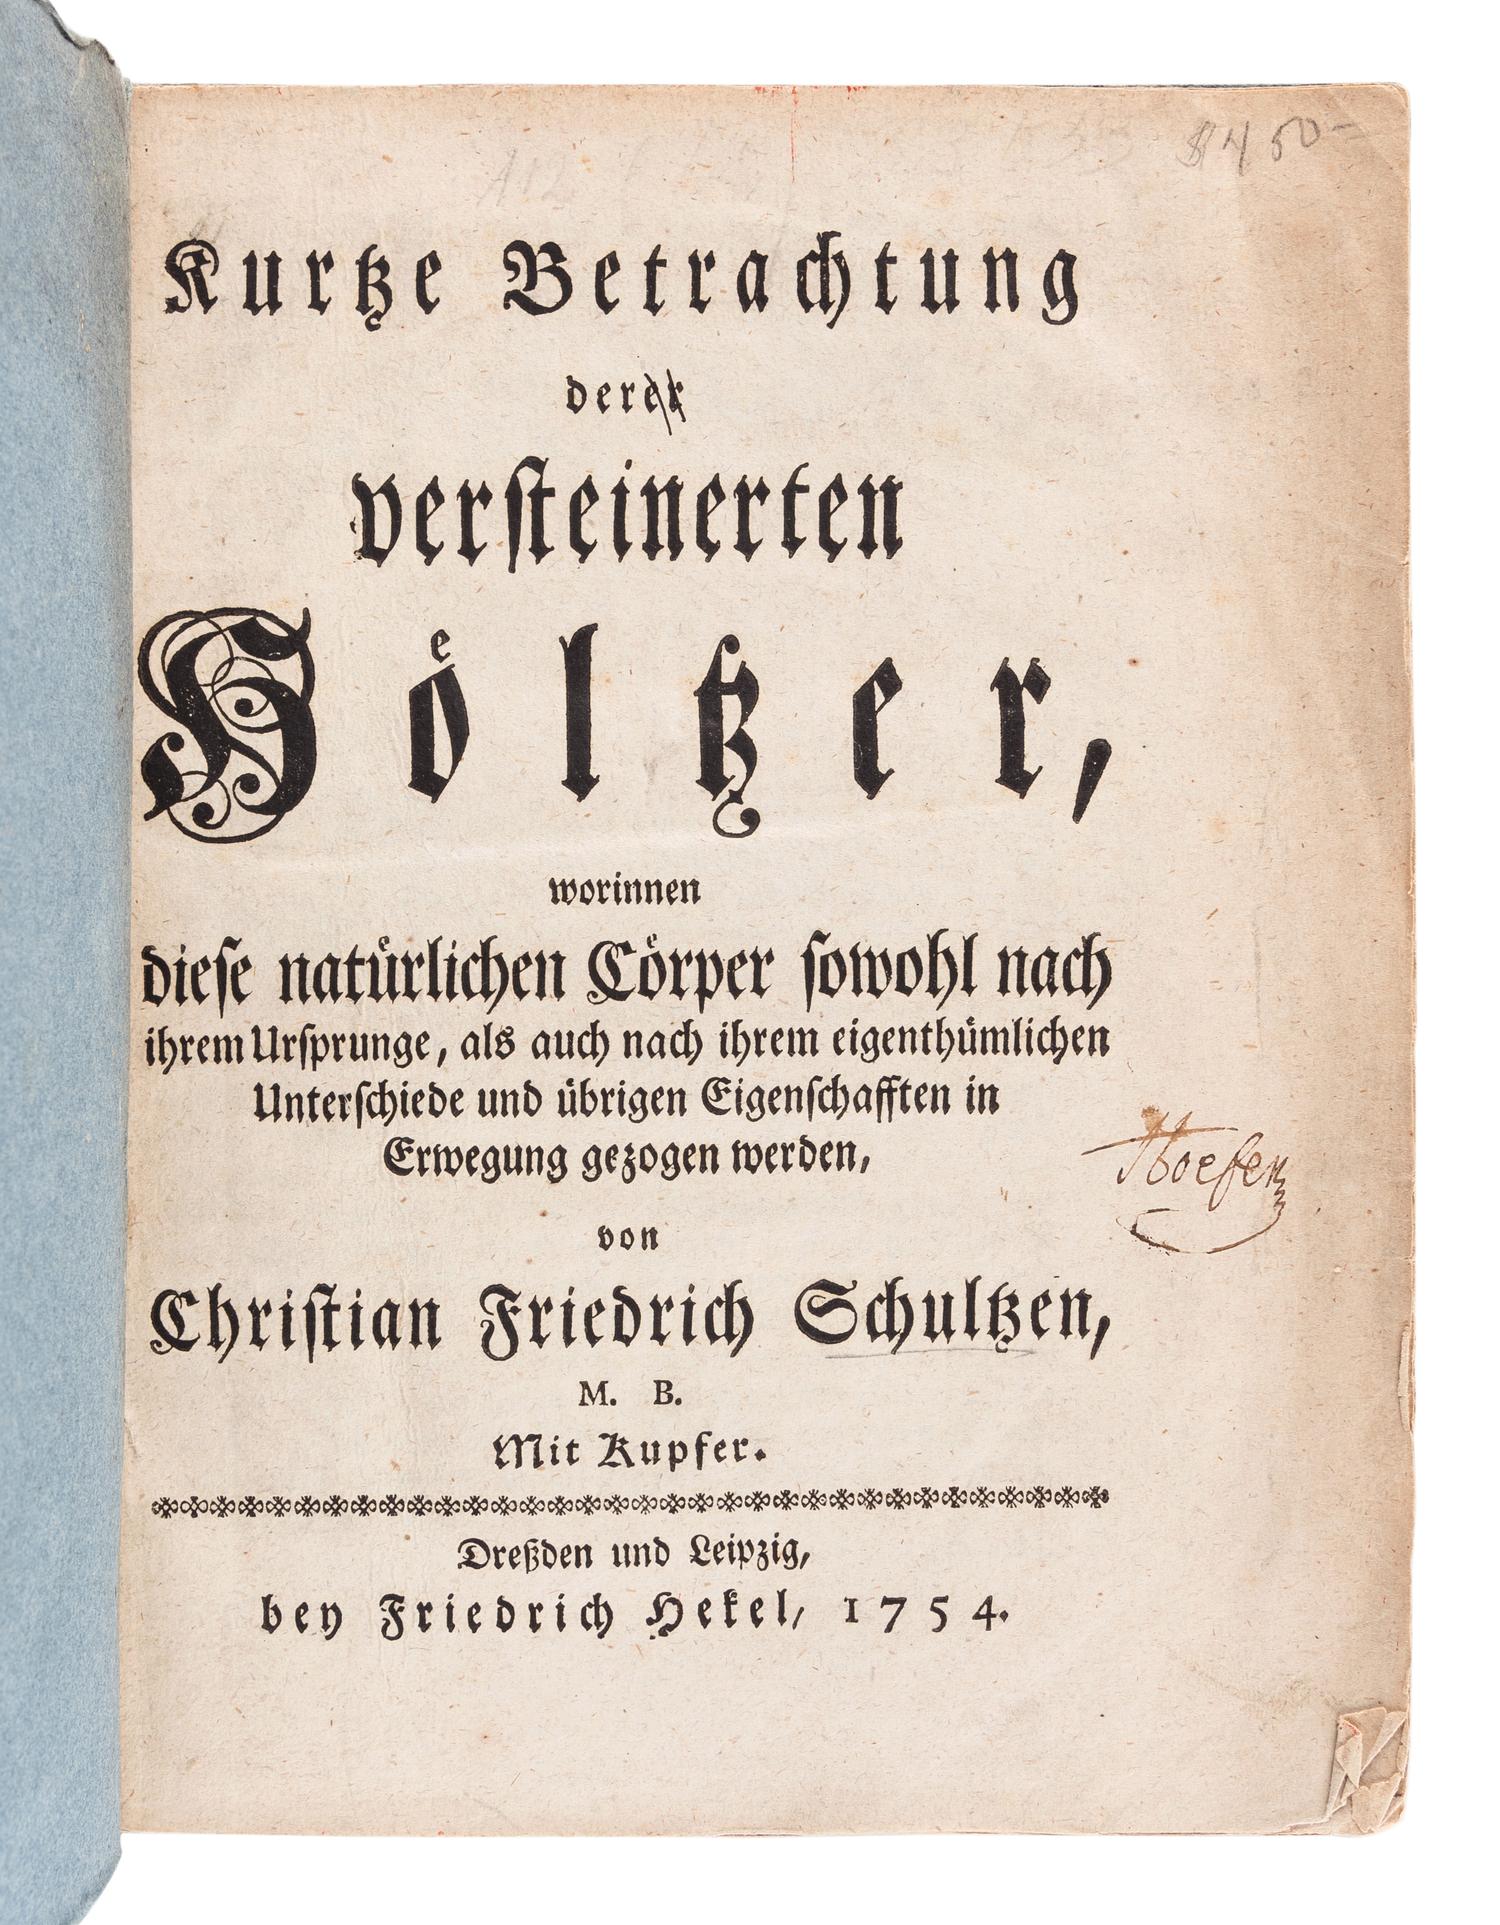 $450-
Kurtze Betrachtung
derer
versteinerten
Hoͤltzer,
worinnen
dieſe natuͤrlichen Coͤrper ſowohl nach
ihrem Urſprunge, als auch nach ihrem eigenthuͤmlichen
Unterſchiede und uͤbrigen Eigenſchafften in
Erwegung gezogen werden,
von
Chriſtian Friedrich Schultzen,
M. B.
Mit Kupfer.
Dreßden und Leipzig,
bey Friedrich Hekel, 1754.